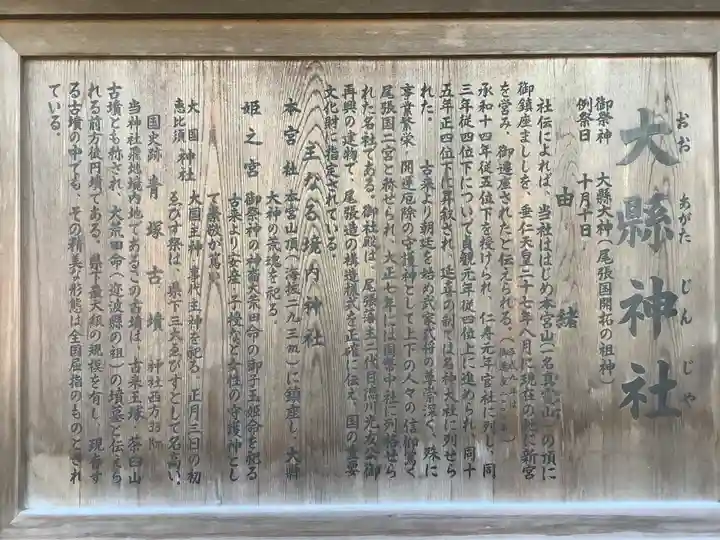 大縣神社
おお あがた じん じゃ
御祭神 大縣大神(尾張国開拓の祖神)
例祭日 十月十日
由緒
社伝によれば、当社ははじめ本宮山(一名真尖山)の頂に
御鎮座ましましを、垂仁天皇二十七年八月に現在の地に新宮
を営み、御遷座されたと伝えられる。(平成九年は
承和十四年従五位下を授けられ、仁寿元年官社に列し、同
三年従四位下について貞観元年従四位上に進められ、同十
五年正四位下に昇叙され、延喜の制では名神大社に列せら
れた。 古来より朝廷を始め武家武将の尊崇深く、殊に
事業繁栄・開運厄除の守護神として上下の人々の信仰篤く
尾張国二宮と称せられ、大正七年には国幣中社に列格せら
れた名社である。御社殿は、尾張藩主二代目徳川光友公御
再興の建物で、尾張造の構造様式を正確に伝え、国の重要
文化財に指定されている。
主なる境内神社
本宮社 本宮山頂(海抜二九三m)に鎮座し、大縣
大神の荒魂を祀る。
姫之宮 御祭神の神裔大荒田命の御子玉姫命を祀る
古来より安産・子授など女性の守護神とし
て崇敬が篤い。
大国恵比須神社 大国主神・事代主神を祀る。正月三日の初
ゑびす祭は、県下三大ゑびすとして名高い。
国史跡 青塚古墳 神社西方3.3Km
当神社飛地境内地であるこの古墳は、古来王塚・茶臼山
古墳とも称され、大荒田命(迩波縣の祖)の墳墓と伝えら
れる前方後円墳である。県下最大級の規模を有し、現存す
る古墳の中でも、その精美な形態は全国屈指のものとされ
ている。